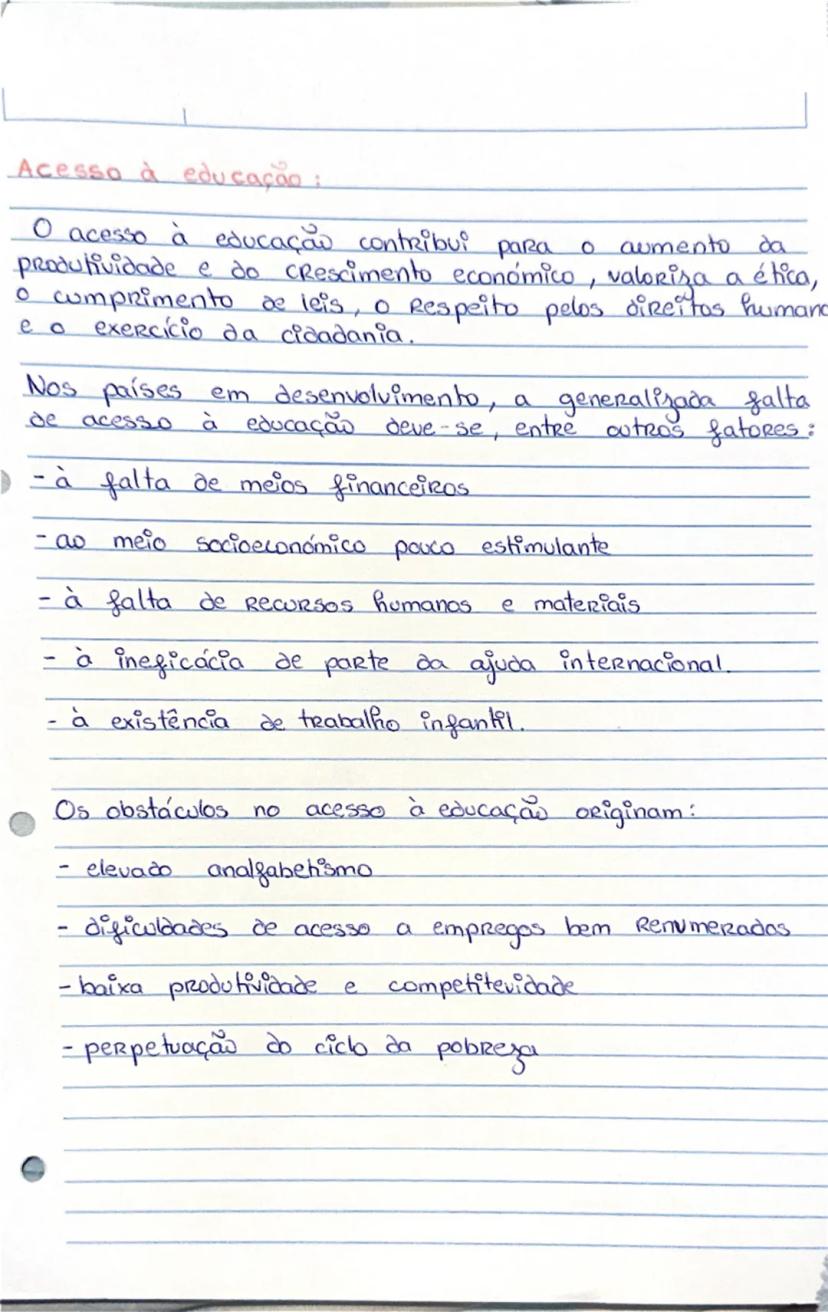 Acesso à educação:
O acesso à educação contribui para o aumento da
produtividade e do crescimento económico, valoriza a ética,
o cumprimento de leis, o respeito pelos direitos human
e o exercício da cidadania.
Nos países em desenvolvimento, a generalizada falta
de acesso à educação deve-se, entre outros fatores:
- à falta de meios financeiros
- ao meio socioeconómico pouco estimulante
- à falta de recursos humanos e materiais
- à ineficácia de parte da ajuda internacional.
- à existência de trabalho infantil.
Os obstáculos no acesso à educação originam:
- elevado analfabetismo
- dificuldades de acesso a empregos bem renumerados
- baixa produtividade e competitevidade
- perpetuação do ciclo da pobreza